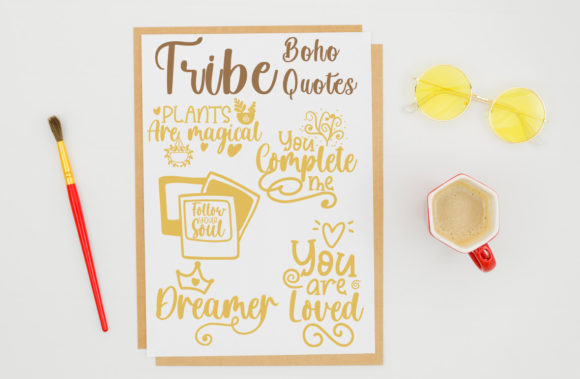 Tribe
Boho
Quotes
PLANTS
Are magical
You
Complete
me
Follow
your
Soul
Dreamer
You
are
Loved